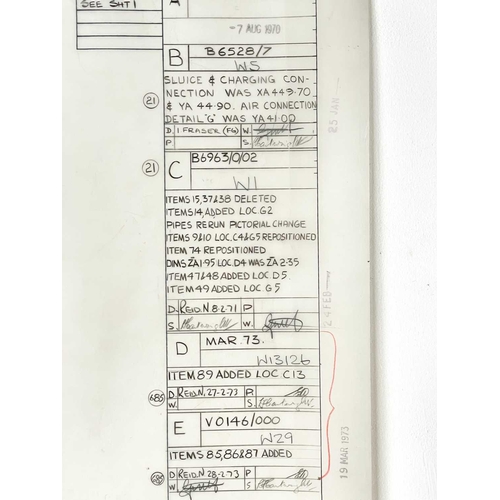 SEE SHT 1
A
-7 AUG 1970
B B6528/7
W5
SLUICE & CHARGING CON-
NECTION WAS XA 449.70
& YA 44.90. AIR CONNECTION
DETAIL 'G' WAS YA 41.00
21
D. I FRASER (FG) W.
P S.
C B6963/0/02
21
W1
ITEMS 15,37&38 DELETED
ITEMS 14, ADDED LOC. G2
PIPES RERUN PICTORIAL CHANGE
ITEMS 9&10 LOC. C4&G5 REPOSITIONED
ITEM 74 REPOSITIONED
DIMS ZA 1.95 LOC. D4 WAS ZA 2.35
ITEM 47&48 ADDED LOC D5
ITEM 49 ADDED LOC. G5
D. REID.N. 8-2-71 P
S. W.
D MAR. 73.
W13126
ITEM 89 ADDED LOC. C13
685 D. REID.N. 27-2-73 P.
W. S.
E V0146/000
W29
ITEMS 85,86&87 ADDED
D. REID.N. 28-2-73 P
W S
25 JAN
24 FEB
19 MAR 1973